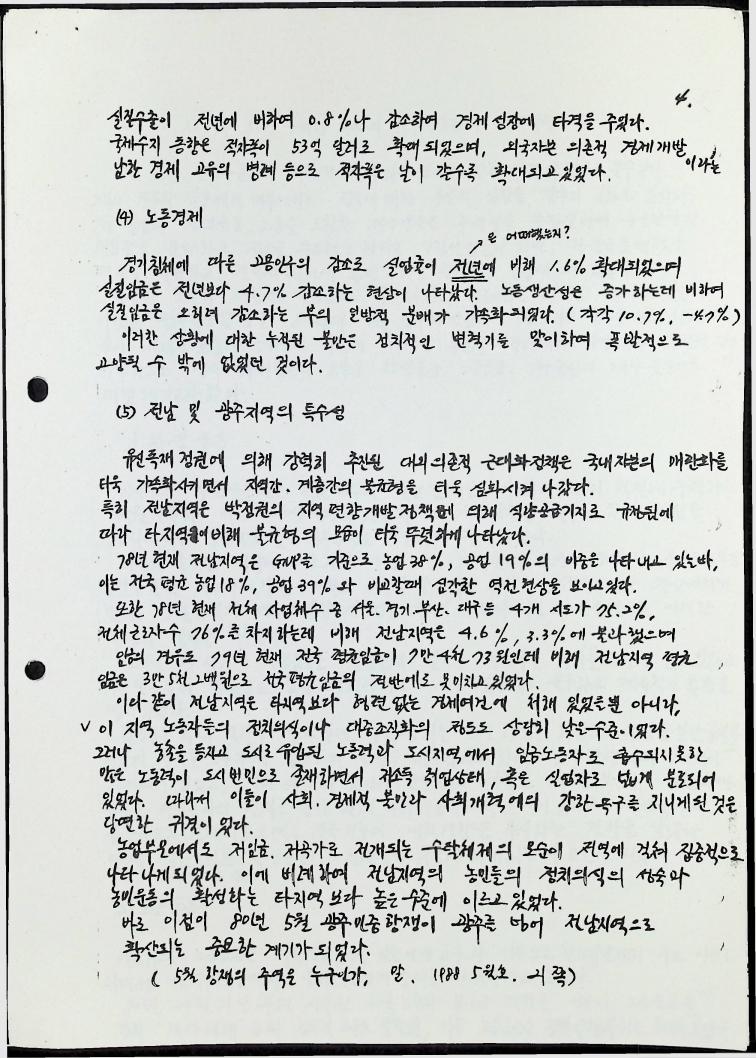 4.
실질수출이 전년에 비하여 0.8%나 감소하여 경제성장에 타격을 주었다.
국제수지 동향은 적자폭이 53억 달러로 확대되었으며, 외국자본 의존적 경제개발이라는
남한 경제 고유의 병폐 등으로 적자폭은 날이 갈수록 확대되고 있었다.
(4) 노동경제
은 어떠했는지?
경기침체에 따른 고용인구의 감소로 실업률이 전년에 비해 1.6% 확대되었으며
실질임금은 전년보다 4.7% 감소하는 현상이 나타났다. 노동생산성은 증가하는데 비하여
실질임금은 오히려 감소하는 부의 일방적 분배가 가속화되었다. (각각 10.7%, -4.7%)
이러한 상황에 대한 누적된 불만은 정치적인 변혁기를 맞이하여 폭발적으로
고양될 수 밖에 없었던 것이다.
(5) 전남 및 광주지역의 특수성
유신독재정권에 의해 강력히 추진된 대외의존적 근대화정책은 국내자본의 매판화를
더욱 가속화시키면서 지역간. 계층간의 불균형을 더욱 심화시켜 나갔다.
특히 전남지역은 박정권의 지역편향개발정책에 의해 식량공급기지로 규정됨에
따라 타지역에 비해 불균형의 모습이 더욱 뚜렷하게 나타났다.
78년 현재 전남지역은 GNP를 기준으로 농업 38%, 공업 19%의 비중을 나타내고 있는바,
이는 전국 평균 농업 18%, 공업 39%와 비교할때 심각한 역전현상을 보이고 있다.
또한 78년 현재 전체 사업체수 중 서울. 경기. 부산. 대구 등 4개 시도가 75.2%,
전체 근로자수 76%를 차지하는데 비해 전남지역은 4.6%, 3.3%에 불과했으며
임금의 경우도 79년 현재 전국 평균임금이 7만 4천 73원인데 비해 전남지역 평균
임금은 3만 5천 2백원으로 전국평균임금의 절반에도 못미치고 있었다.
이와 같이 전남지역은 타지역보다 형편 없는 경제여건에 처해 있었을뿐 아니라,
∨ 이 지역 노동자들의 정치의식이나 대중조직화의 정도도 상당히 낮은 수준이었다.
그러나 농촌을 등지고 도시로 유입된 노동력과 도시지역에서 임금노동자로 흡수되지 못한
많은 노동력이 도시빈민으로 존재하면서 저소득 취업상태, 혹은 실업자로 넓게 분포되어
있었다. 따라서 이들이 사회. 경제적 불만과 사회개혁에의 강한 욕구를 지니게 된 것은
당연한 귀결이었다.
농업부문에서도 저임금. 저곡가로 전개되는 수탈체제의 모순이 전역에 걸쳐 집중적으로
나타나게 되었다. 이에 비례하여 전남지역의 농민들의 정치의식의 성숙과
농민운동의 활성화는 타지역 보다 높은 수준에 이르고 있었다.
바로 이점이 80년 5월 광주민중항쟁이 광주를 넘어 전남지역으로
확산되는 중요한 계기가 되었다.
( 5월 항쟁의 주역은 누구인가, 말. 1988 5월호. 21쪽)